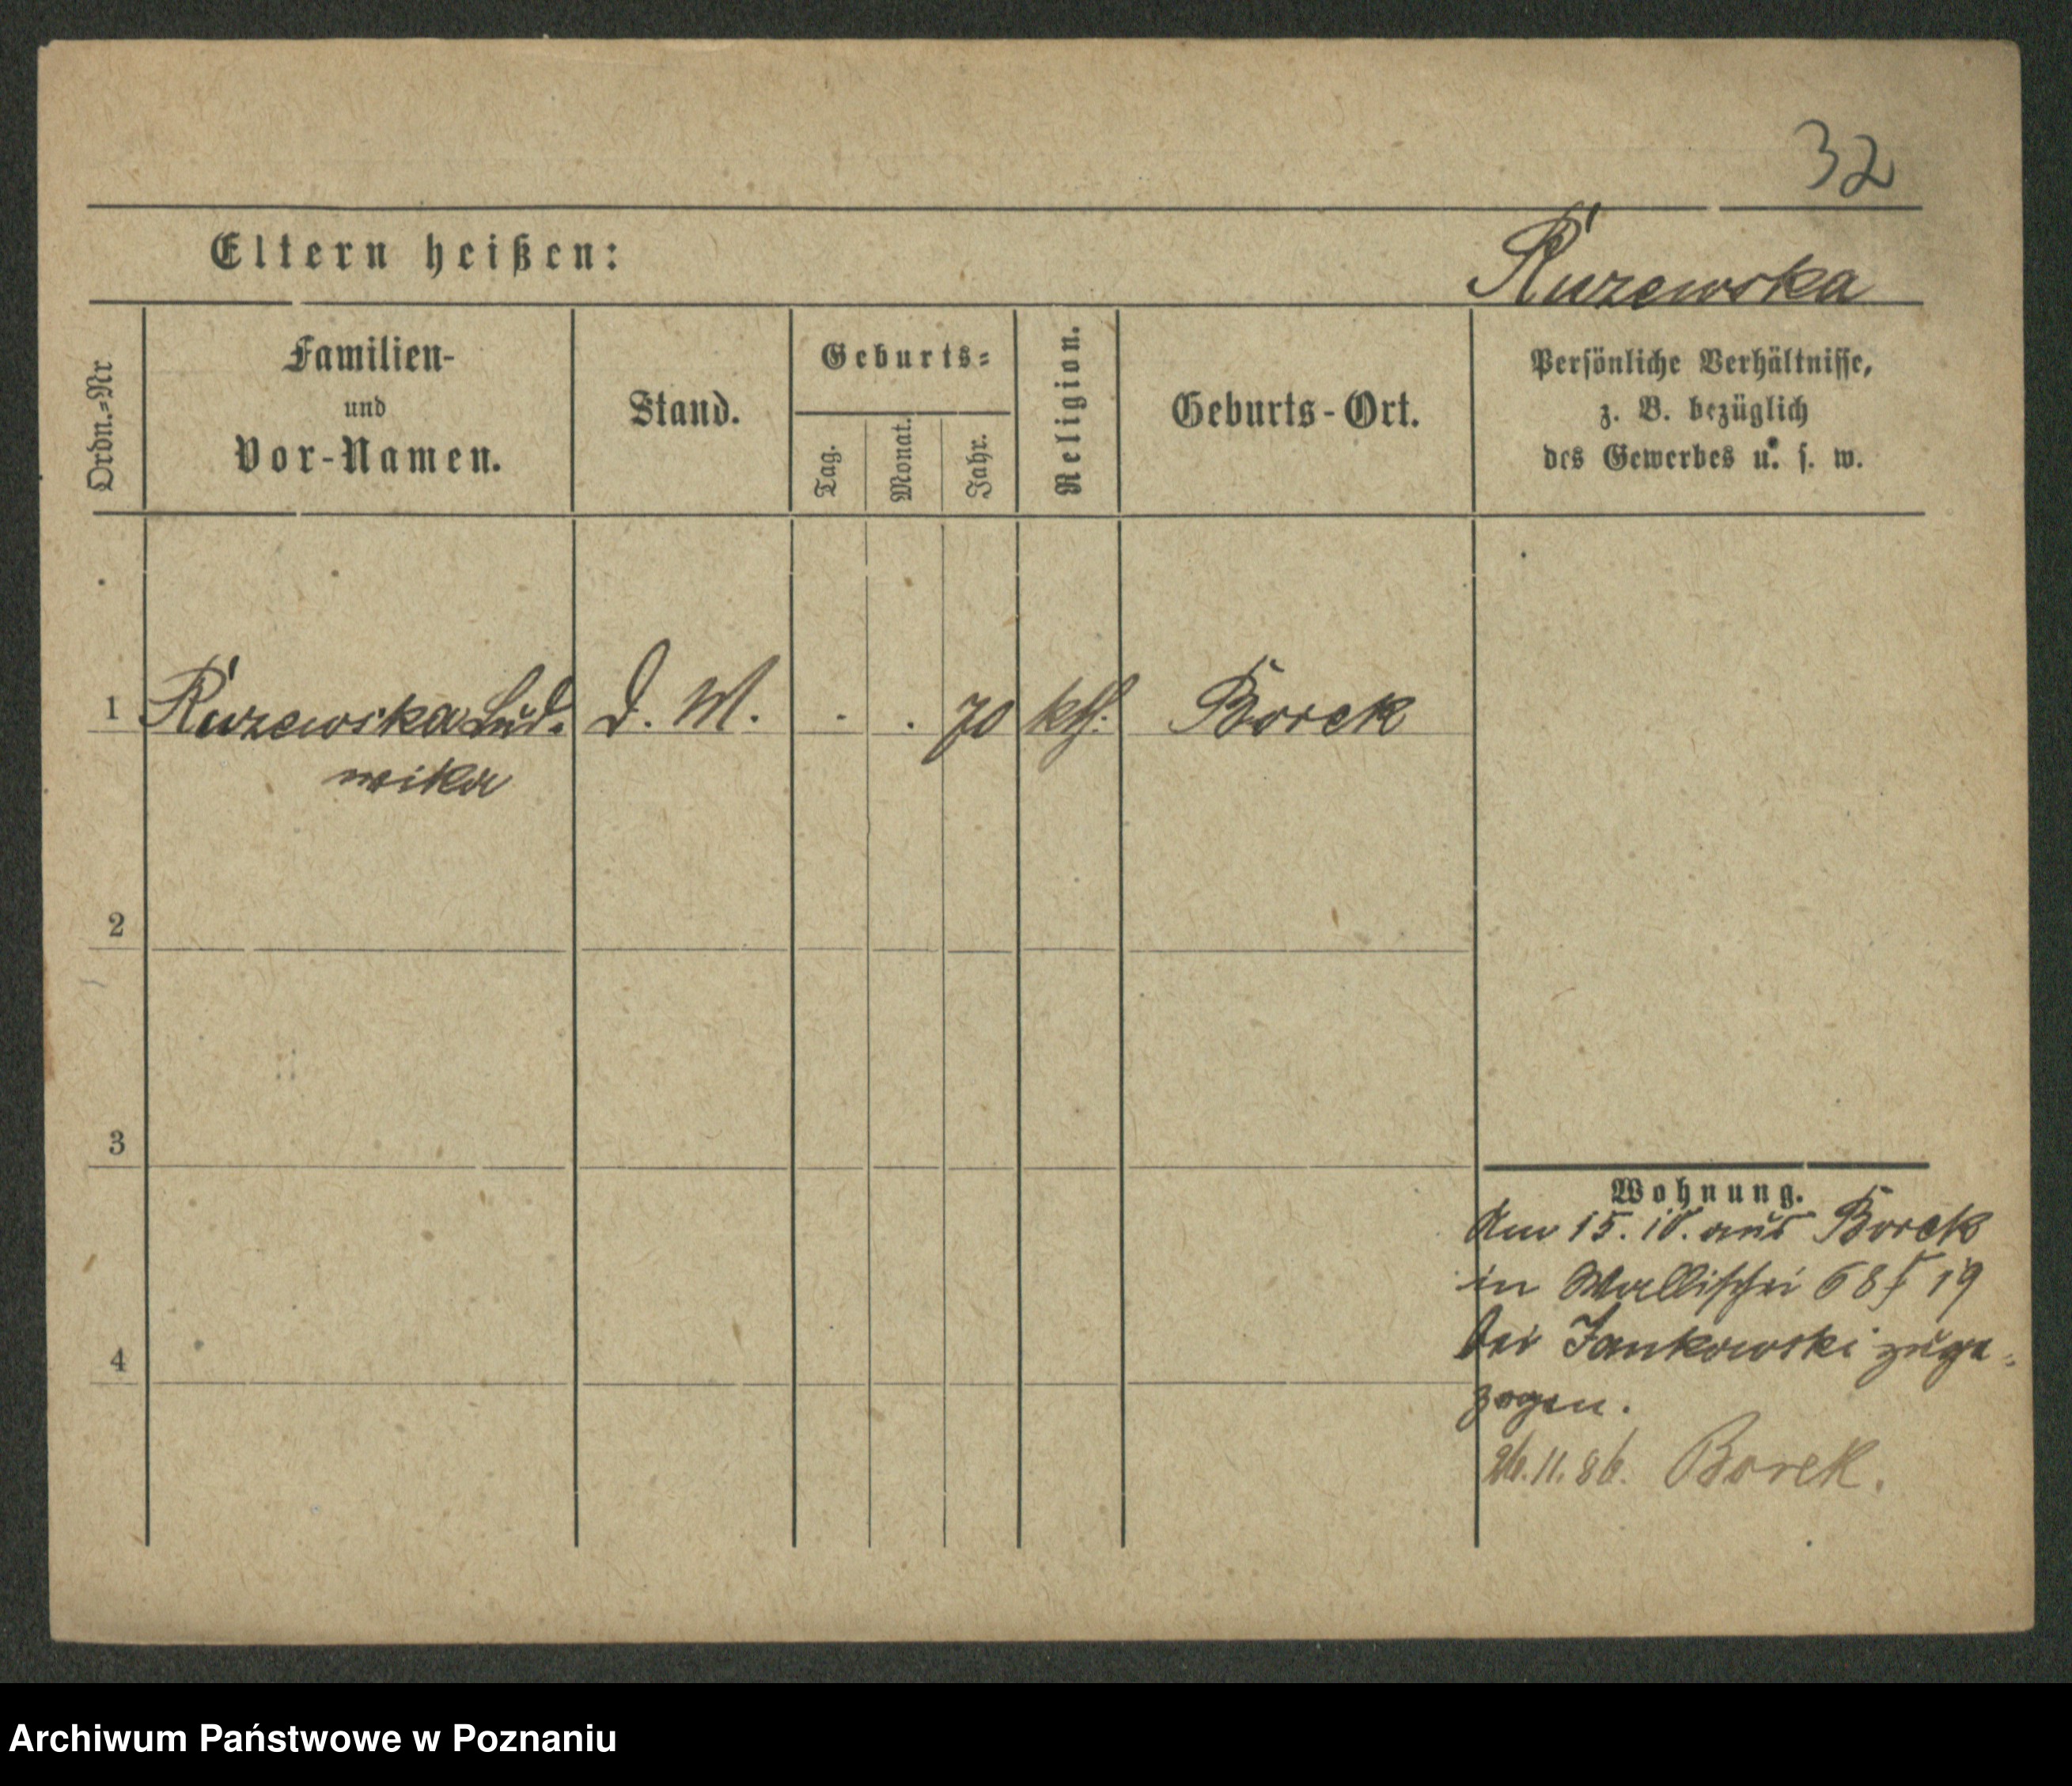 32
Eltern heißen:
Ruzewska
Ordn.=Nr
Familien-
und
Vor-Namen.
Stand.
Geburts=
Tag.
Monat.
Jahr.
Religion.
Geburts-Ort.
Persönliche Verhältnisse,
z. B. bezüglich
des Gewerbes u. s. w.
1 Ruzewska Lud. D. M. . . 70 kth. Borek
wika
2
3
4
Wohnung.
Am 15.10. aus Borek
in Wallischei 68 19
bei Jankowski zuge=
zogen.
26.11.86. Borek.
Archiwum Państwowe w Poznaniu